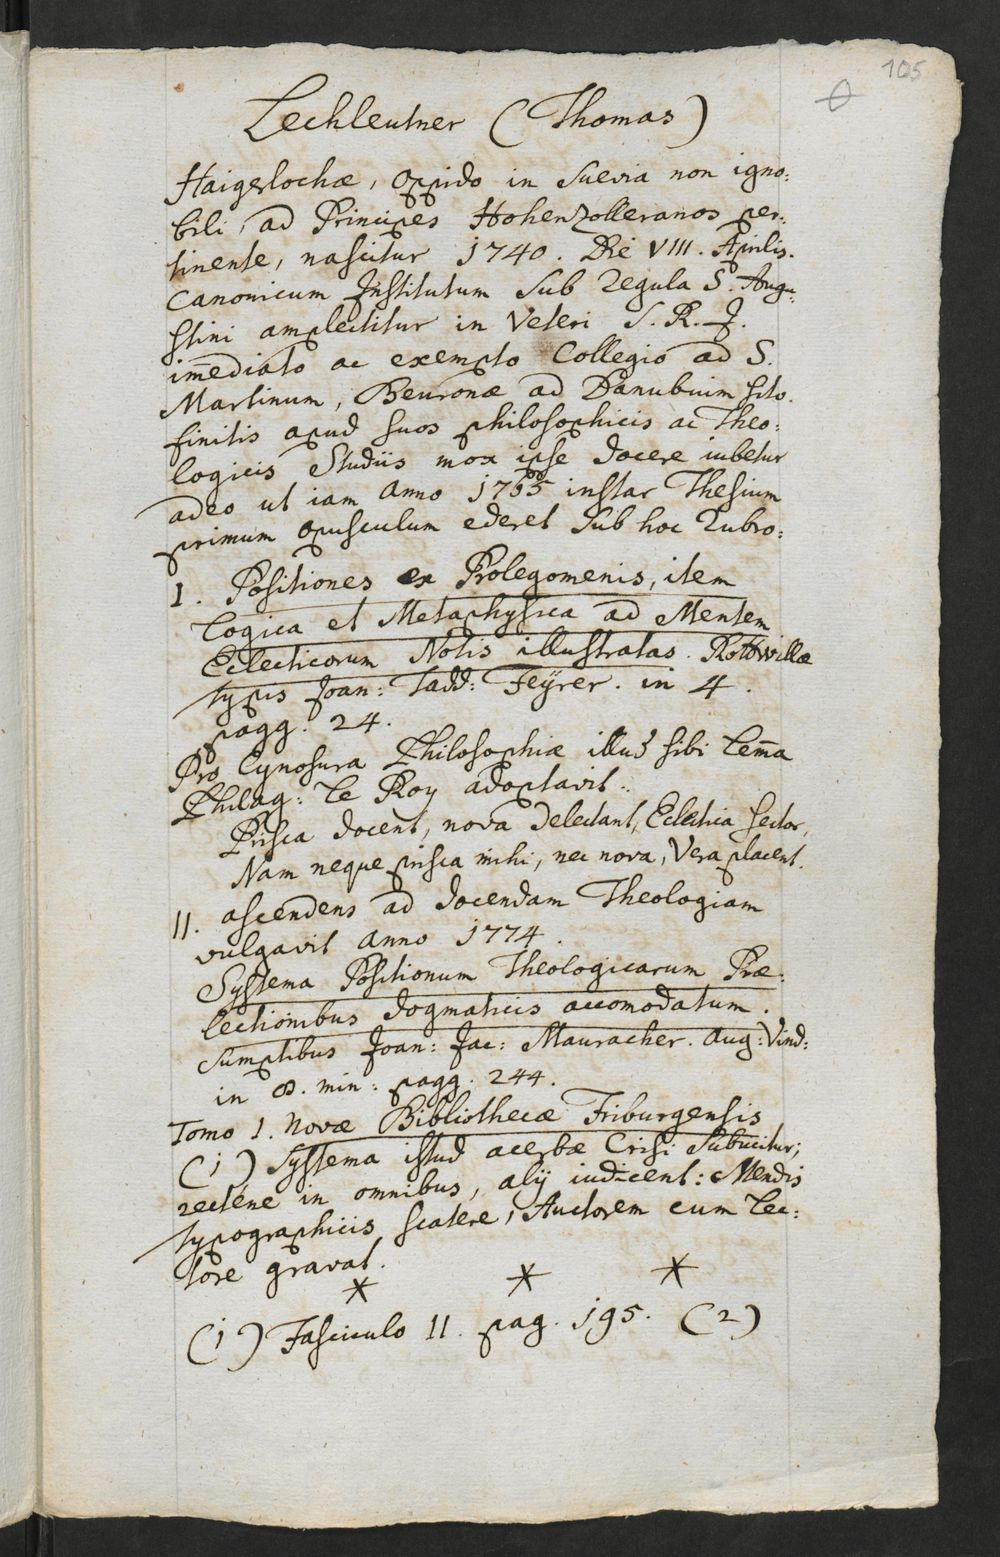 105
Lechleutner (Thomas)
Haigerlochæ, oppido in Suevia non igno:
bili, ad Principes Hohenzolleranos per:
tinente, nascitur 1740. Die VIII. Aprilis.
Canonicum Institutum sub regula S. Augu:
stini amplectitur in Veteri S. R. J.
im̄ediato ac exempto Collegio ad S.
Martinum, Beuronæ ad Danubuim sito.
finitis apud suos philosophicis ac Theo:
logicis studiis mox ipse docere iubetur
adeo ut iam anno 1765 instar Thesium
primum opusculum ederet sub hoc rubro:
I. Positiones ex Prolegomenis, item
Logica et Metaphysica ad Mentem
Eclecticorum Notis illustratas. Rottwillæ
typis Joan: Tadd: Feÿrer. in 4.
pagg. 24.
Pro Cynosura Philosophiæ illud sibi Lem̄a
Philag: Le Roy adoptavit:
Prisca docent, nova delectant, Eclectica sector,
Nam neque prisca mihi, nec nova, Vera placent.
II. ascendens ad docendam Theologiam
vulgavit anno 1774.
Systema Positionum Theologicarum Præ:
lectionibus dogmaticis accomodatum.
sumptibus Joan: Jac: Mauracher. Aug: Vind:
in 8. min: pagg. 244.
Tomo I. Novæ Bibliothecæ Friburgensis
(1) Systema istud acerbæ Crisi subiicitur;
rectène in omnibus, alij iudicent: Mendis
typographicis scatere, Auctorem cum Lec:
tore gravat.
* * *
(1) Fasciculo II. pag. 195. (2)